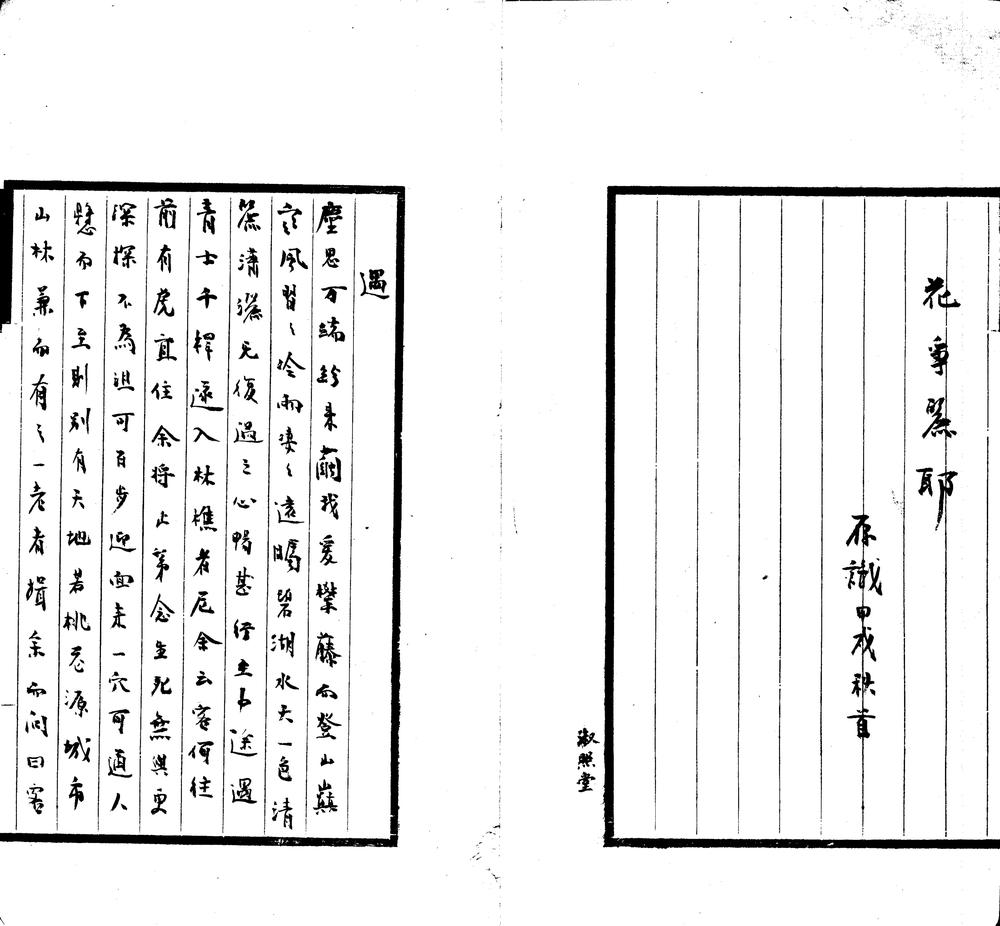 花爭麗耶
原識甲戌秋首
淑照堂
遇
塵思万端紛來繭我爰攀藤而登山巔
風習々冷雨凄々遠矚碧湖水天一色清
瀟灑无復過之心暢甚徑至中途遇
青士千桿遠入林樵者尼余云客何往
前有虎宜住余將止第念生死無與更
深探不為沮可百步迎面来一穴可通人
懸而下至則別有天地若桃花源城市
山林兼而有之一老者揖余而问曰客